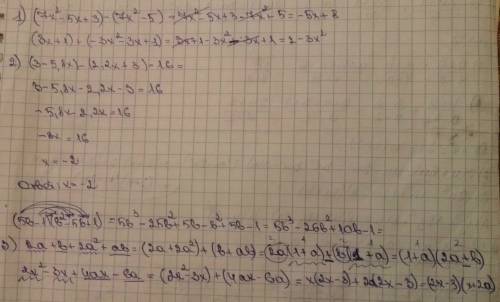 1) (7x² - 5x + 3) - (7x² - 5) = 7x² - 5x + 3 - 7x² + 5 = -5x + 8
(3x + 1) + (-3x² - 3x + 1) = 3x + 1 - 3x² - 3x + 1 = 2 - 3x²
2) (3 - 5,8x) - (2,2x + 3) = 16 =
3 - 5,8x - 2,2x - 3 = 16
-5,8x - 2,2x = 16
-8x = 16
x = -2
Ответ: x = -2
(5b - 1)(b² - 5b + 1) = 5b³ - 25b² + 5b - b² + 5b - 1 = 5b³ - 26b² + 10b - 1 =
3) 2a + b + 2a² + ab = (2a + 2a²) + (b + ab) = 2a(1 + a) + b(1 + a) = (1 + a)(2a + b)
2x² - 3x + 4ax - 6a = (2x² - 3x) + (4ax - 6a) = x(2x - 3) + 2a(2x - 3) = (2x - 3)(x + 2a)